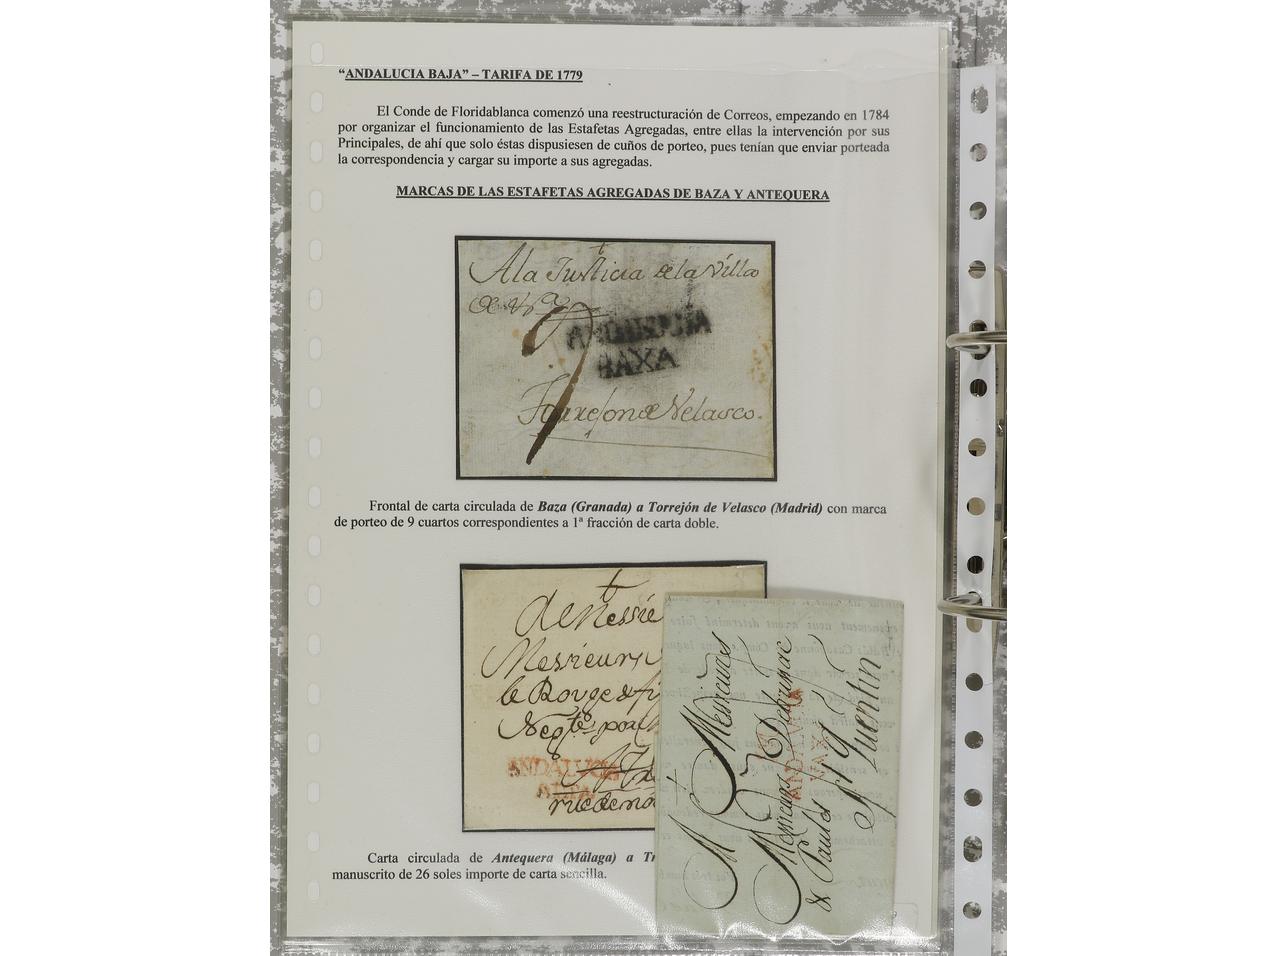 “ANDALUCIA BAJA” – TARIFA DE 1779
El Conde de Floridablanca comenzó una reestructuración de Correos, empezando en 1784
por organizar el funcionamiento de las Estafetas Agregadas, entre ellas la intervención por sus
Principales, de ahí que solo éstas dispusiesen de cuños de porteo, pues tenían que enviar porteada
la correspondencia y cargar su importe a sus agregadas.
MARCAS DE LAS ESTAFETAS AGREGADAS DE BAZA Y ANTEQUERA
A la Justicia de la Villa
de
BAXA
Torrejon de Velasco.
Frontal de carta circulada de Baza (Granada) a Torrejón de Velasco (Madrid) con marca
de porteo de 9 cuartos correspondientes a 1ª fracción de carta doble.
Messieurs
le Rouge & fi
Negte. por
ANDALVCIA
rue de
Carta circulada de Antequera (Málaga) a Tr
manuscrito de 26 soles importe de carta sencilla.
A Messieurs
Messieurs
&
St Quentin
ANDALVCIA